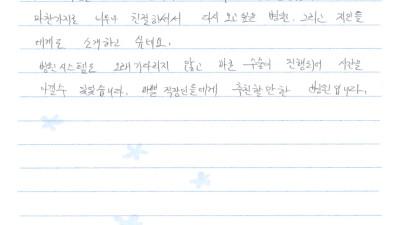 마찬가지로 너무나 친절하셔서 다시 오고 싶은 병원. 그리고 지인들
에게도 소개하고 싶네요.
병원시스템도 오래 기다리지 않고 빠른 수술이 진행되어 시간을
아낄수 있었습니다. 바쁜 직장인들에게 추천할 만한 병원 입니다.